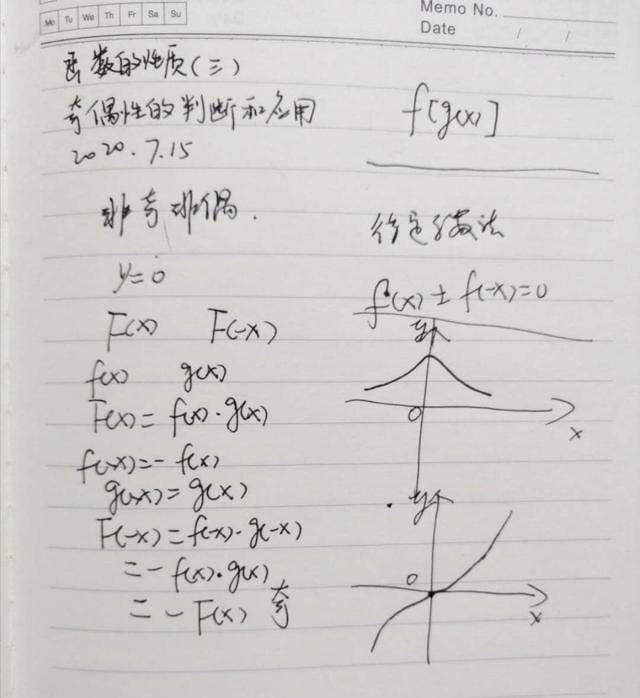 Mo Tu We Th Fr Sa Su
Memo No.
Date / /
函数的性质(三)
奇偶性的判断和应用
2020.7.15
非奇非偶.
y=0
F(x) F(-x)
f(x) g(x)
F(x)=f(x)·g(x)
f(-x)=-f(x)
g(-x)=g(x)
F(-x)=f(-x)·g(-x)
=-f(x)·g(x)
=-F(x) 奇
f[g(x)]
待定系数法
f(x)±f(-x)=0
y
O
x
y
O
x